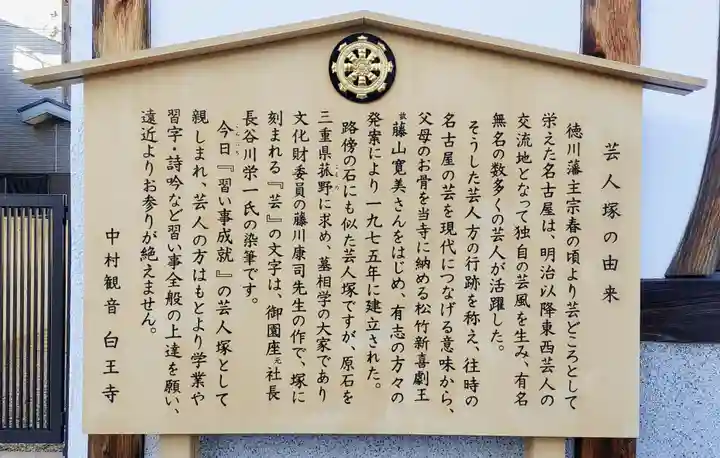 芸人塚の由来
徳川藩主宗春の頃より芸どころとして
栄えた名古屋は、明治以降東西芸人の
交流地となって独自の芸風を生み、有名
無名の数多くの芸人が活躍した。
そうした芸人方の行跡を称え、往時の
名古屋の芸を現代につなげる意味から、
父母のお骨を当寺に納める松竹新喜劇王
故藤山寛美さんをはじめ、有志の方々の
発案により一九七五年に建立された。
路傍の石にも似た芸人塚ですが、原石を
三重県菰野に求め、墓相学の大家であり
文化財委員の藤川康司先生の作で、塚に
刻まれる『芸』の文字は、御園座元社長
長谷川栄一氏の染筆です。
今日『習い事成就』の芸人塚として
親しまれ、芸人の方はもとより学業や
習字・詩吟など習い事全般の上達を願い、
遠近よりお参りが絶えません。
中村観音 白王寺